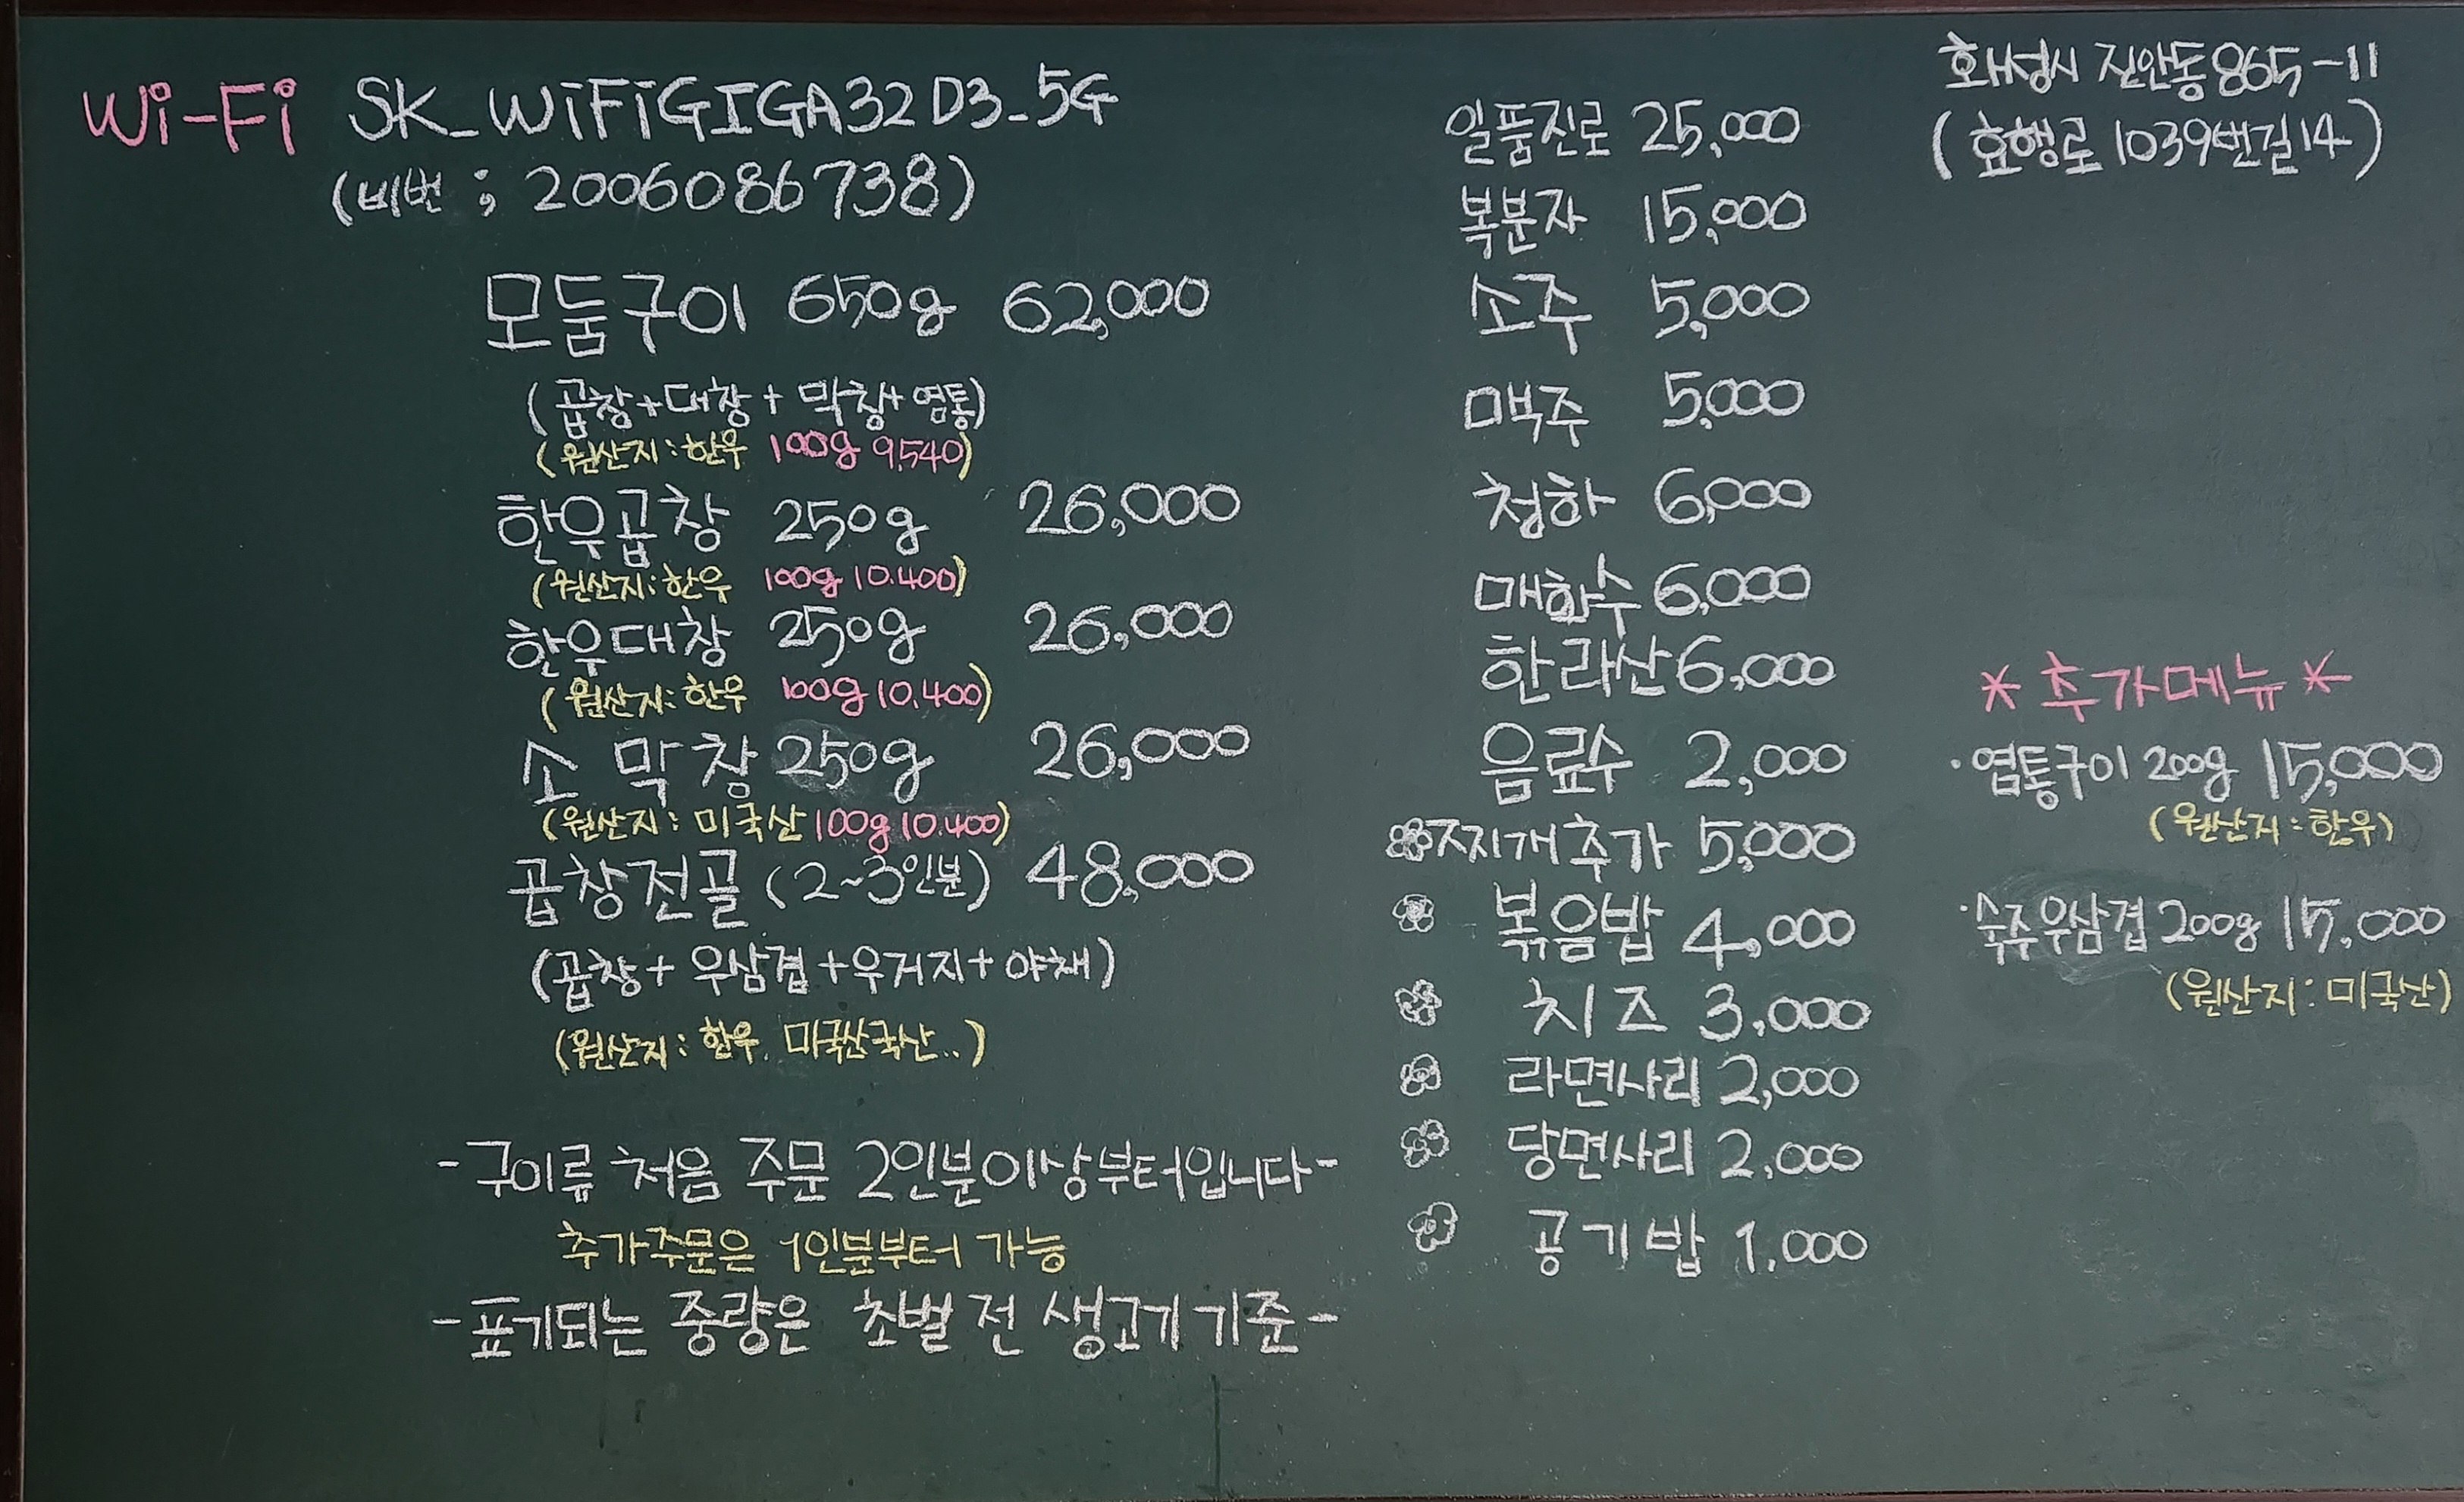 Wi-Fi SK_WiFiGIGA32D3_5G
(비번 ; 2006086738)
모둠구이 650g 62,000
(곱창+대창+막창+염통)
(원산지:한우 100g 9,540)
한우곱창 250g 26,000
(원산지:한우 100g 10.400)
한우대창 250g 26,000
(원산지:한우 100g 10,400)
소 막창 250g 26,000
(원산지: 미국산 100g 10.400)
곱창전골 (2~3인분) 48,000
(곱창+우삼겹+우거지+야채)
(원산지: 한우, 미국산국산..)
-구이류 처음 주문 2인분이상부터입니다-
추가주문은 1인분부터 가능
-표기되는 중량은 초벌 전 생고기 기준-
일품진로 25,000
복분자 15,000
소주 5,000
맥주 5,000
청하 6,000
매화수 6,000
한라산 6,000
음료수 2,000
찌개추가 5,000
볶음밥 4,000
치즈 3,000
라면사리 2,000
당면사리 2,000
공기밥 1,000
화성시 진안동 865-11
(효행로 1039번길 14)
* 추가메뉴 *
·염통구이 200g 15,000
(원산지:한우)
·숙주우삼겹 200g 15,000
(원산지:미국산)